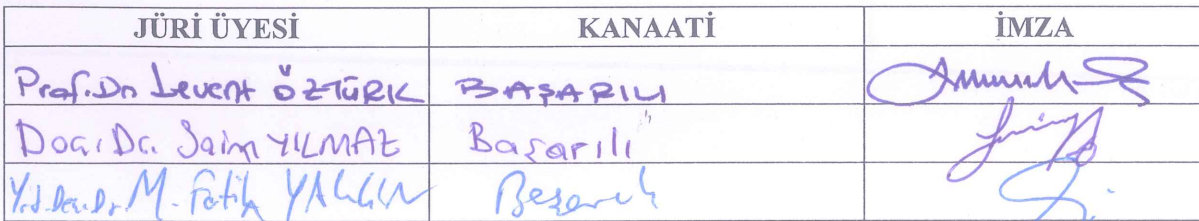 JÜRİ ÜYESİ KANAATİ İMZA
Prof.Dr Levent ÖZTÜRK BAŞARILI
Doç.Dr. Saim YILMAZ Başarılı
Yrd.Doç.Dr. M. Fatih Başarılı